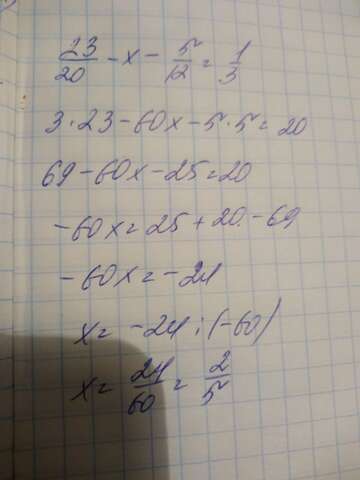 23/20 - x - 5/12 = 1/3
3·23-60x-5·5=20
69-60x-25=20
-60x=25+20-69
-60x=-24
x=-24:(-60)
x=24/60=2/5